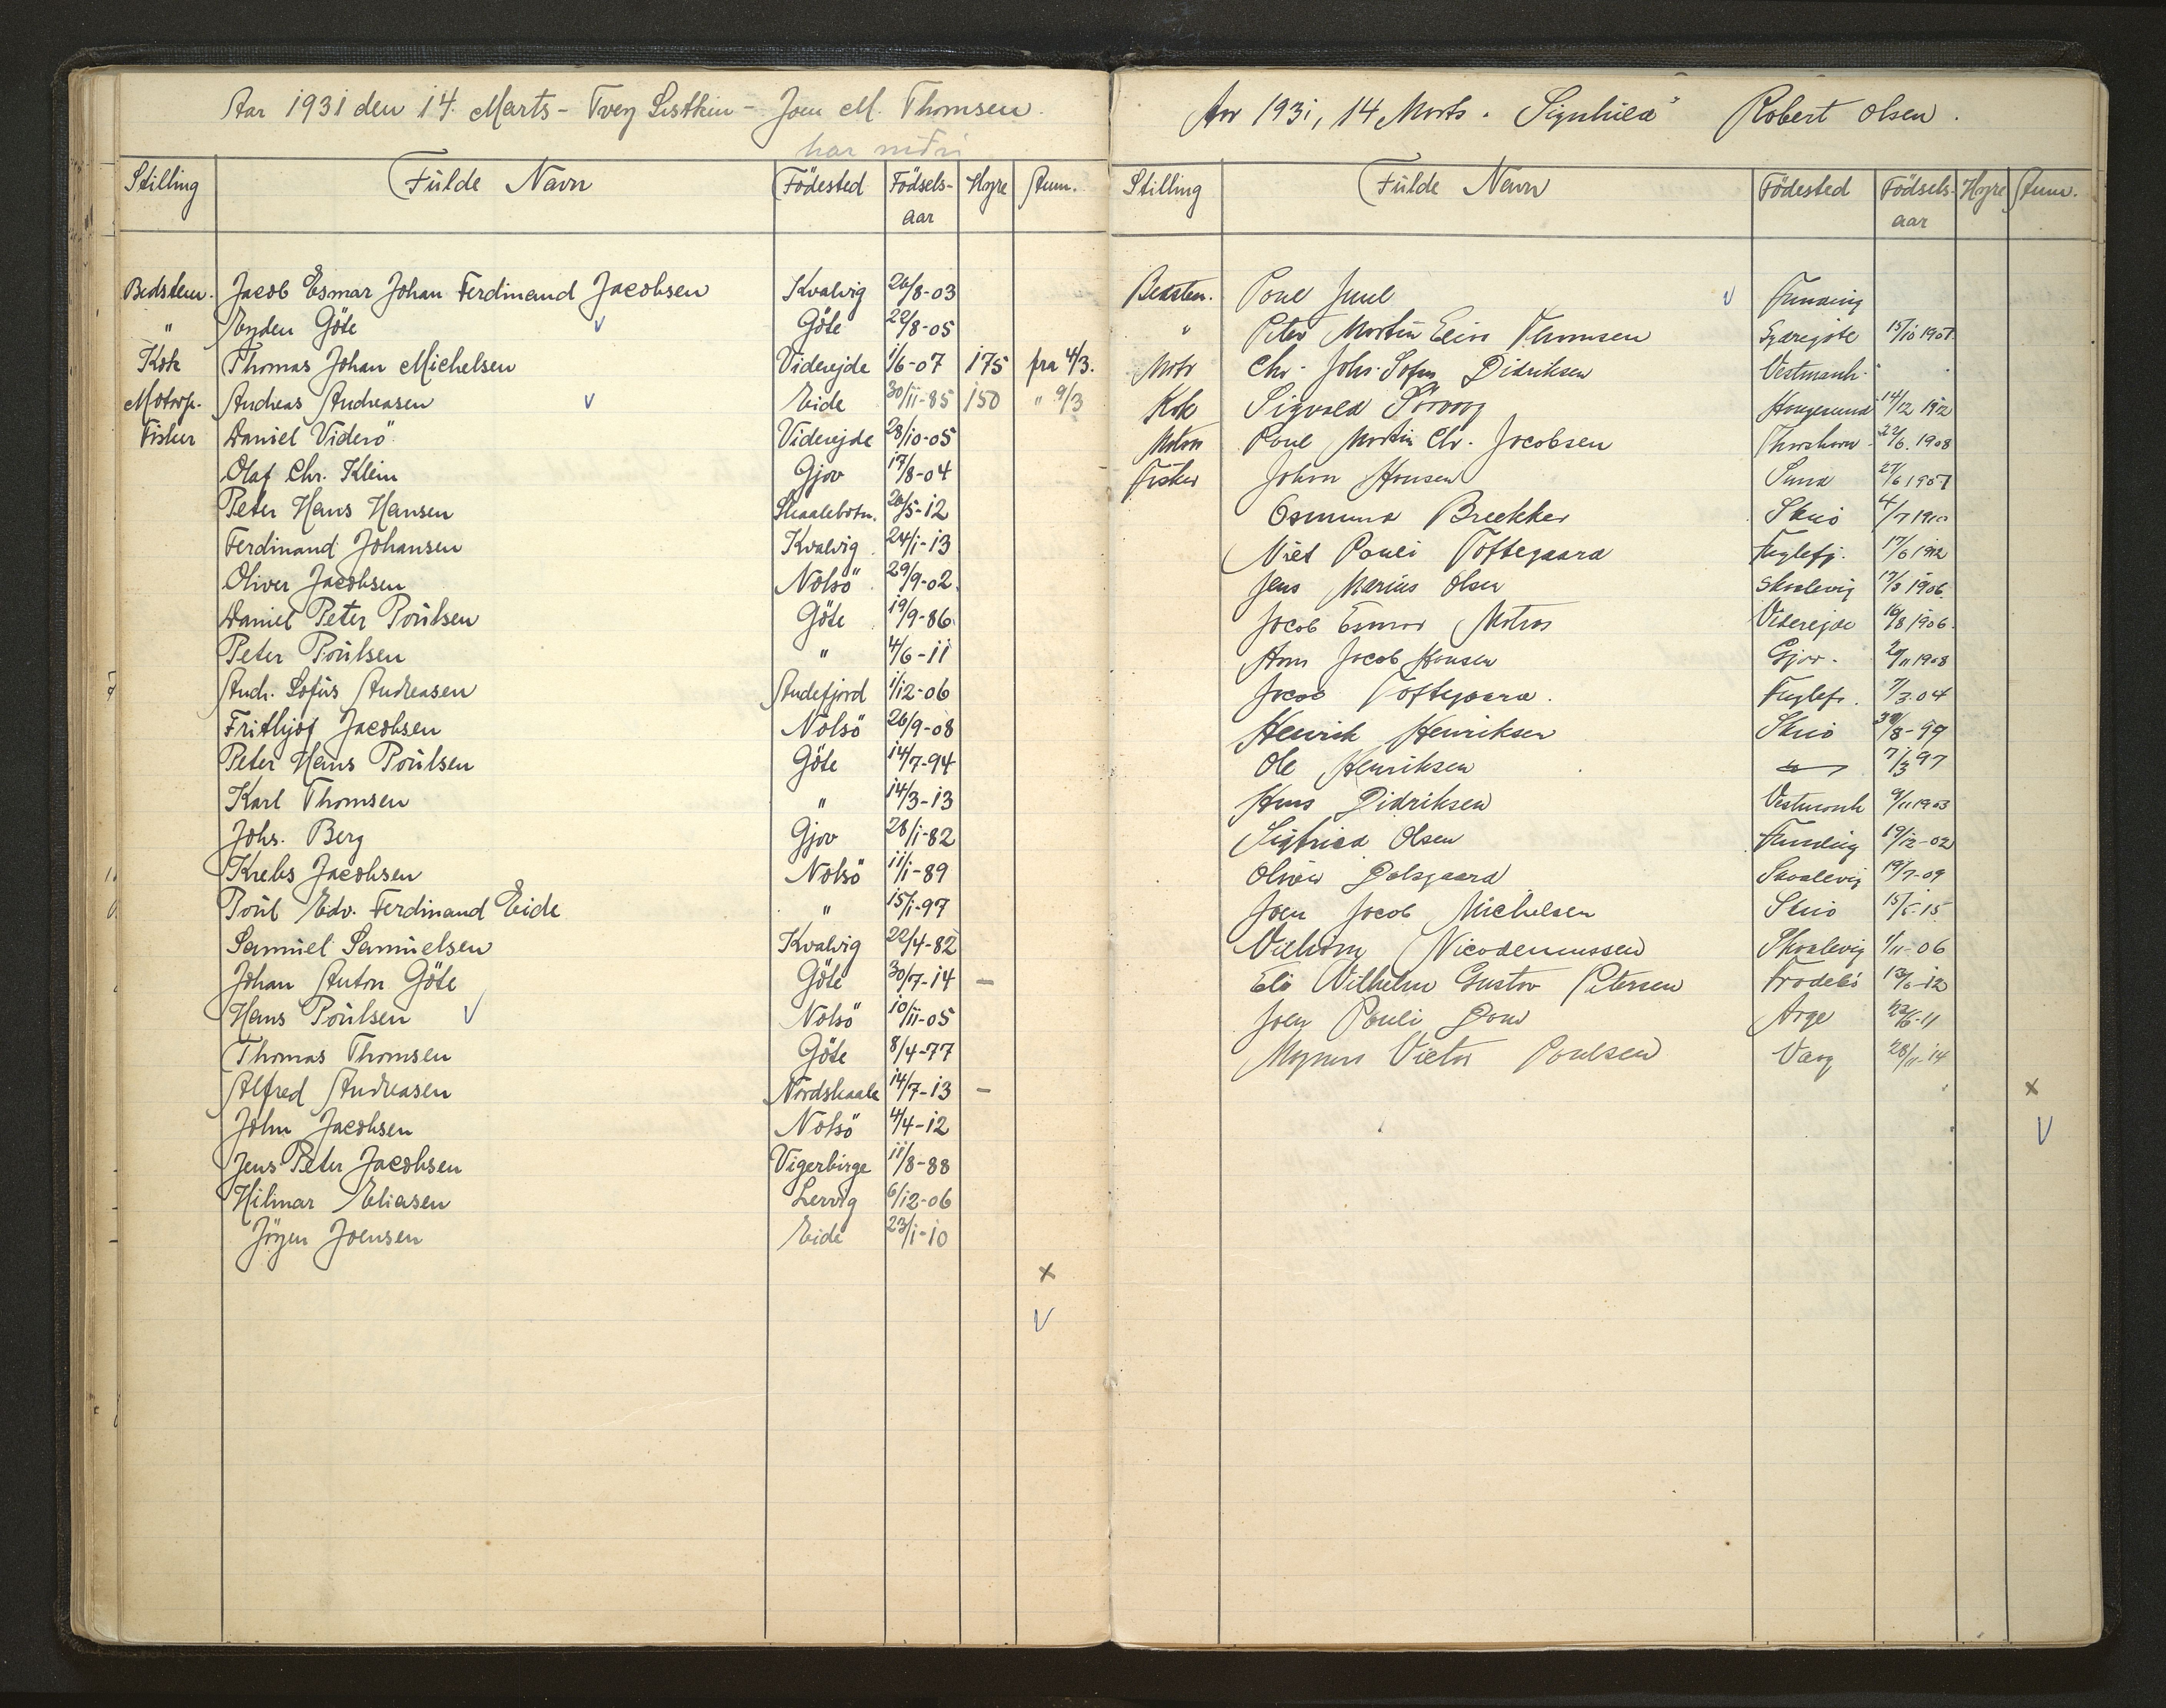 Aar 1931 den 14. Marts - Tvey Sistkin - Joen M. Thomsen
har
Stilling Fulde Navn Födested Födsels-aar Hyre Anm.
Bedstem. Jacob Esmar Johan Ferdinand Jacobsen Kvalvig 26/8-03
" Eyden Göte V Göte 22/8-05
Kok Thomas Johan Michelsen Viderejde 1/6-07 175 fra 4/3.
Motorp. Andreas Andreasen V Eide 30/11-85 150 " 9/3
Fisker Daniel Viderö Viderejde 28/10-05
Olaf Chr. Klein Gjov 17/8-04
Peter Hans Hansen Skaalebotn. 26/5-12
Ferdinand Johansen Kvalvig 24/1-13
Oliver Jacobsen Nolsö 29/9-02
Daniel Peter Poulsen Göte 19/9-86
Peter Poulsen " 4/6-11
Andr. Sofus Andreasen Andefjord 1/12-06
Frithjof Jacobsen Nolsö 26/9-08
Peter Hans Poulsen Göte 14/7-94
Karl Thomsen " 14/3-13
Johs. Berg Gjov 28/1-82
Krebs Jacobsen Nolsö 11/1-89
Poul Edv. Ferdinand Eide " 15/1-97
Samuel Samuelsen Kvalvig 22/4-82
Johan Anton Göte Göte 30/7-14 -
Hans Poulsen V Nolsö 10/11-05
Thomas Thomsen Göte 8/4-77
Alfred Andreasen Nordskaale 14/7-13 -
John Jacobsen Nolsö 4/4-12
Jens Peter Jacobsen Vigerbirge 11/8-88
Hilmar Eliasen Lervig 6/12-06
Jögen Joensen Eide 23/1-10
x
V
Aar 1931, 14 Marts. "Signhild" Robert Olsen.
Stilling Fulde Navn Födested Födsels-aar Hyre Anm.
Bedstem. Poul Juul V Funding
" Peter Martin Elias Thomsen 15/10 1907
Motr Chr. Johs. Sofus Didriksen Vestmanh.
Kok Sigvald Haugesund 14/12 1912
Matros Poul Martin Chr. Jacobsen Thorshavn 22/6. 1908
Fisker Johan Hansen Sund 27/6 1907
Osmund Brekker Skuö 4/7 1910
Niels Pauli Toftegaard Fuglefj. 17/6 1912
Jens Marius Olsen Skaalevig 17/3 1906
Jacob Esmar Matras Viderejde 16/8 1906.
Hans Jacob Hansen Gjov. 2/11 1908
Jacob Toftegaard. Fuglefj. 7/3.04
Henrik Henriksen Skuö 30/8-99
Ole Henriksen 7/3 97
Hans Didriksen Vestmanh 9/11 1903
Sigfried Olsen Funding 19/12-02
Oliver Dalsgaard Skaalevig 19/7-09
Joen Jacob Michelsen Skuö 15/5-15
Vilhelm Nicodemussen Skaalevig 1/11-06
Eli Vilhelm Gustav Petersen Frodebö 13/6-12
Joen Pauli Dam Arge 22/6-11
Magnus Victor Poulsen Vaag 28/11-14
x
V